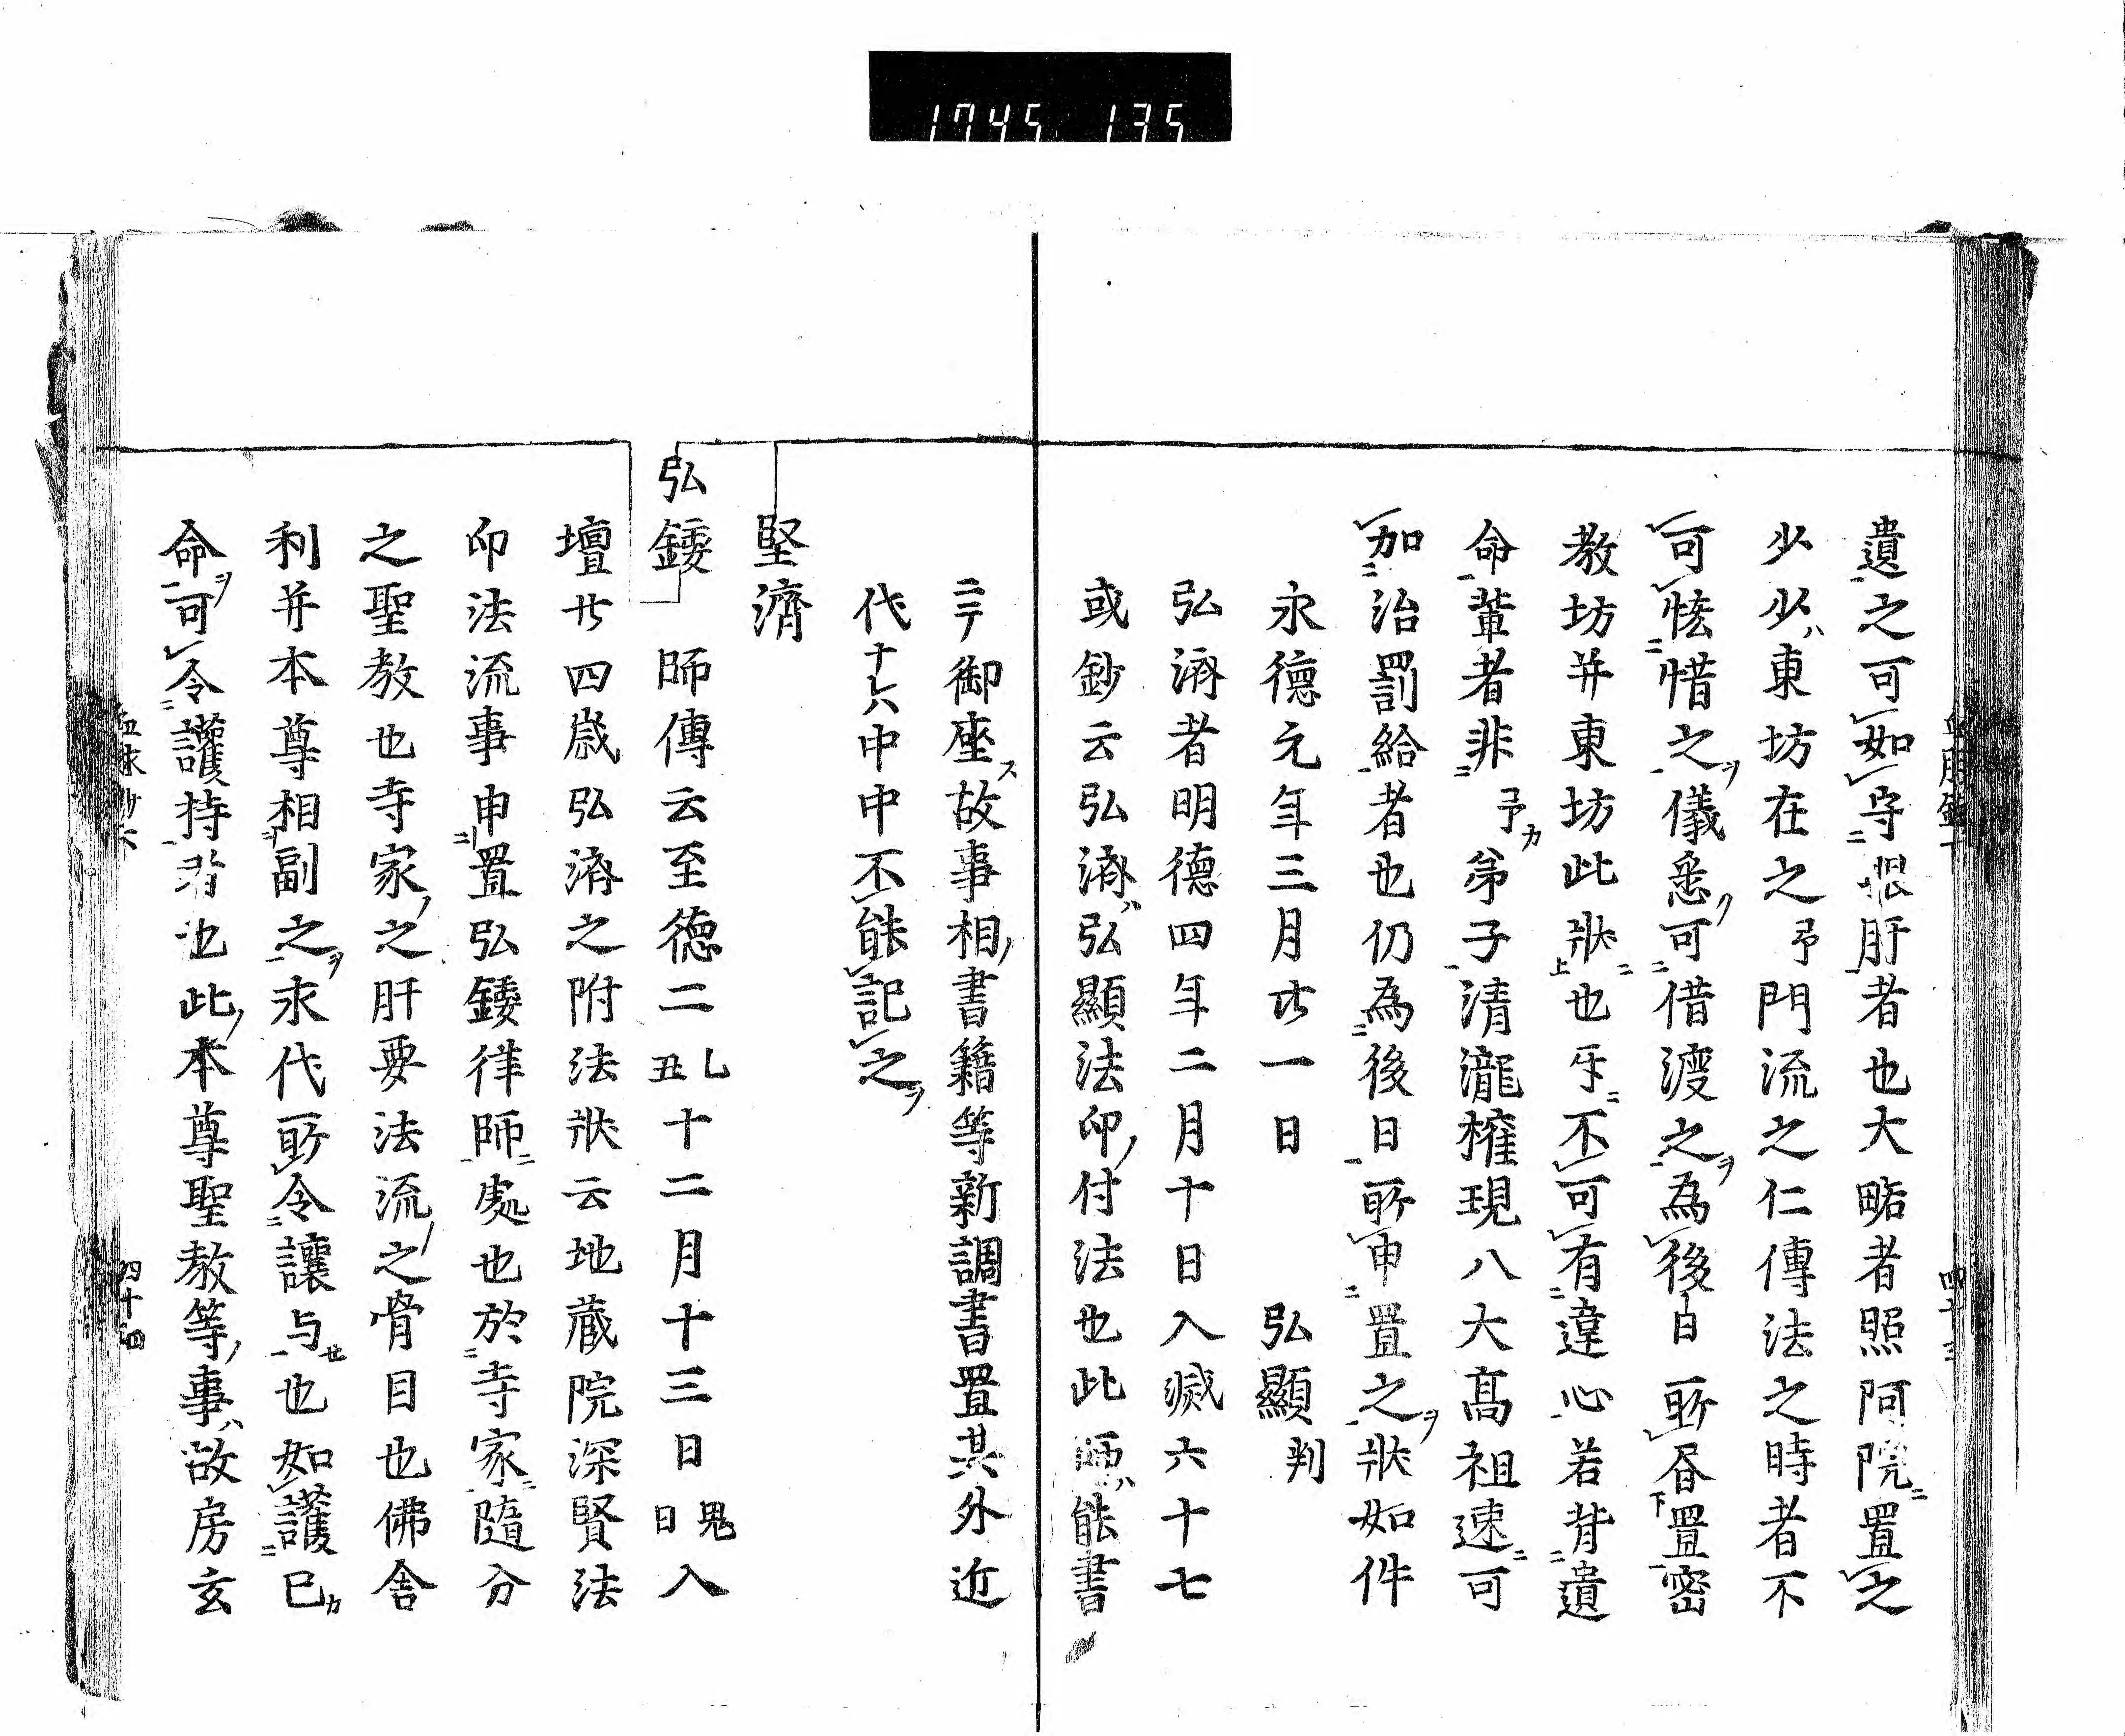 1745 135
遺之可如守眼肝者也大略者照阿院置之
少少東坊在之予門流之仁傳法之時者不
可悋惜之儀悉可借渡之為後日所昏置密
教坊并東坊此狀也努不可有違心若背遺
命輩者非予弟子清瀧権現八大高祖速可
加治罰給者也仍為後日所申置之狀如件
永德元年三月廿一日 弘顯判
弘濟者明德四年二月十日入滅六十七
或鈔云弘濟弘顯法印付法也此師能書
ニテ御座故事相書籍等新調書置其外近
代十六中中不能記之
堅濟
弘鑁 師傳云至德二乙丑十二月十三日鬼日入
壇廿四歲弘濟之附法狀云地藏院深賢法
印法流事申置弘鑁律師處也於寺家隨分
之聖教也寺家之肝要法流之骨目也佛舍
利并本尊相副之永代所令讓与也如護已
命可令護持者也此本尊聖教等事故房玄
四十四